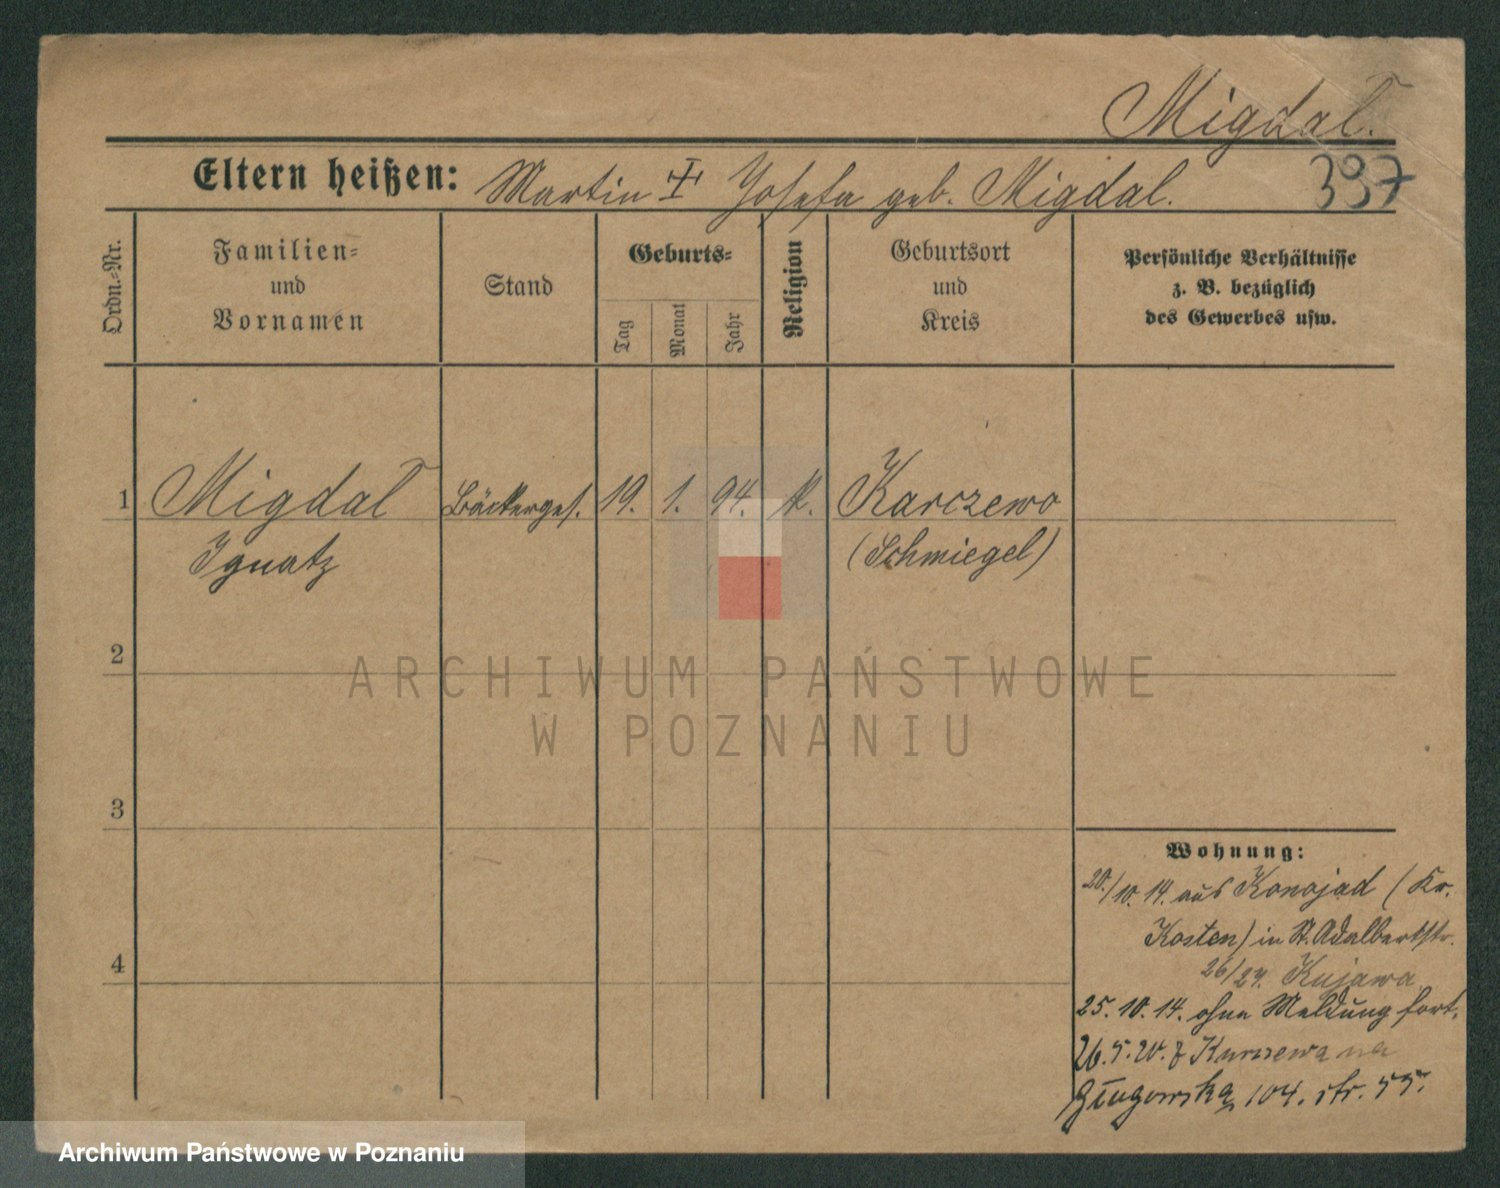 Migdal.
Eltern heißen: Martin + Josefa geb. Migdal.
397
Ordn.=Nr.
Familien=
und
Vornamen
Stand
Geburts=
Tag
Monat
Jahr
Religion
Geburtsort
und
Kreis
Persönliche Verhältnisse
z. B. bezüglich
des Gewerbes usw.
1 Migdal Bäckerges. 19. 1. 94. k. Karczewo
Ignatz (Schmiegel)
2
3
4
Wohnung:
20./10. 14. aus Konojad (Kr.
Kosten) in St. Adalbertstr.
26/27. Kujawa
25. 10. 14. ohne Meldung fort.
26. 5. 20. z na
104. str. 55.
ARCHIWUM PAŃSTWOWE
W POZNANIU
Archiwum Państwowe w Poznaniu